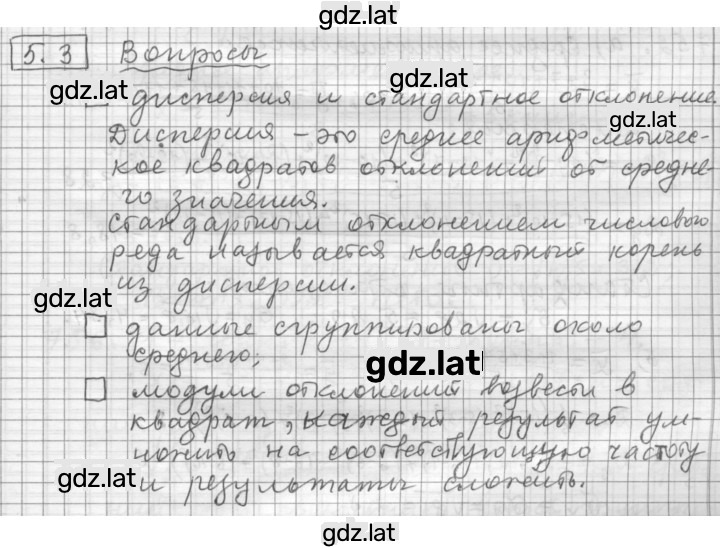 gdz.lat
5.3 Вопросы
gdz.lat
gdz.lat
дисперсия и стандартное отклонение.
gdz.lat
Дисперсия – это среднее арифметичес-
кое квадратов отклонений от средне-
го значения.
Стандартным отклонением числового
реда называется квадратный корень
из дисперсии.
gdz.lat
данные сгруппированы около
среднего;
gdz.lat
модули отклонений возвести в
квадрат, каждый результат ум-
ножить на соответствующую частоту
gdz.lat
и результаты сложить.
gdz.lat